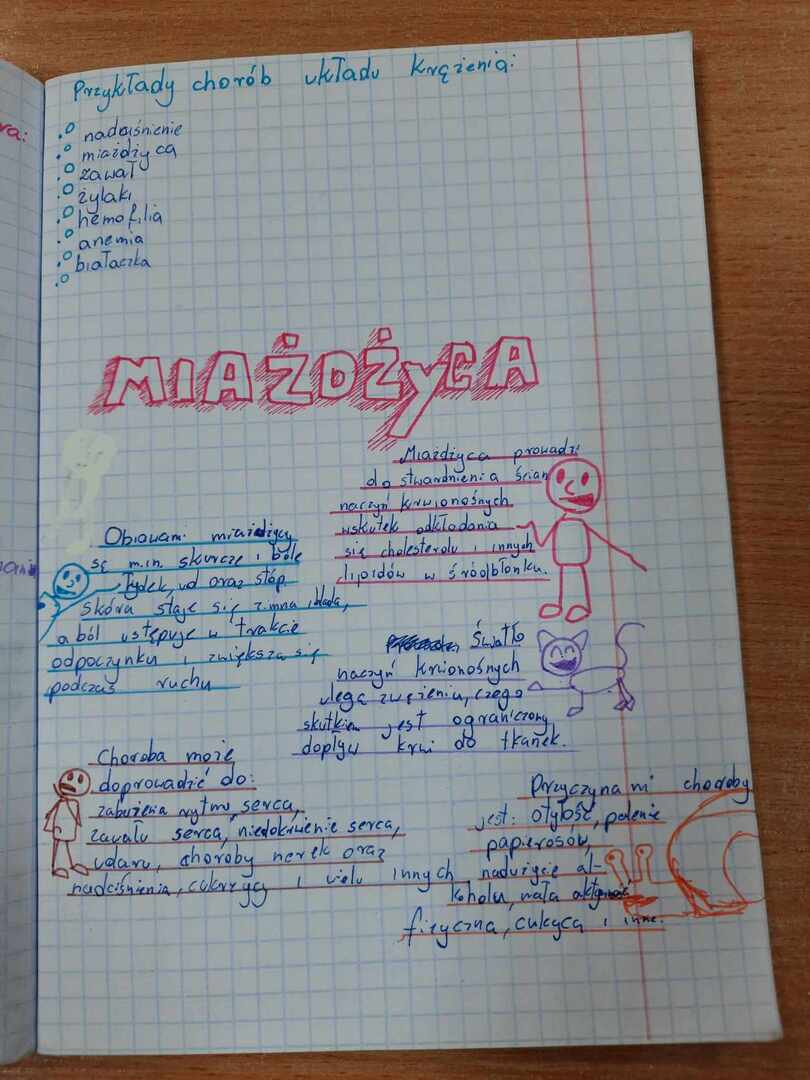 Przykłady chorób układu krążenia:
nadciśnienie
miażdżyca
zawał
żylaki
hemofilia
anemia
białaczka
MIAŻDŻYCA
Miażdżyca prowadzi
do stwardnienia ścian
naczyń krwionośnych
wskutek odkładania
się cholesterolu i innych
lipidów w śródbłonku.
Obiawami miażdżycy
są m.in. skurcze i bóle
łydek, ud oraz stóp
skóra staje się zimna i blada,
a ból ustępuje w trakcie
odpoczynku i zwiększa się
podczas ruchu
Światło
naczyń krwionośnych
ulega zwężeniu, czego
skutkiem jest ograniczony
dopływ krwi do tkanek.
Choroba może
doprowadzić do:
zabużenia rytmu serca,
zawału serca, niedokrwienie serca,
udaru, choroby nerek oraz
nadciśnienia, cukrzycy i wielu innych
Przyczynami choroby
jest: otyłość, palenie
papierosów,
nadużycie al-
koholu, mała aktywność
fizyczna, cukrycą i inne.